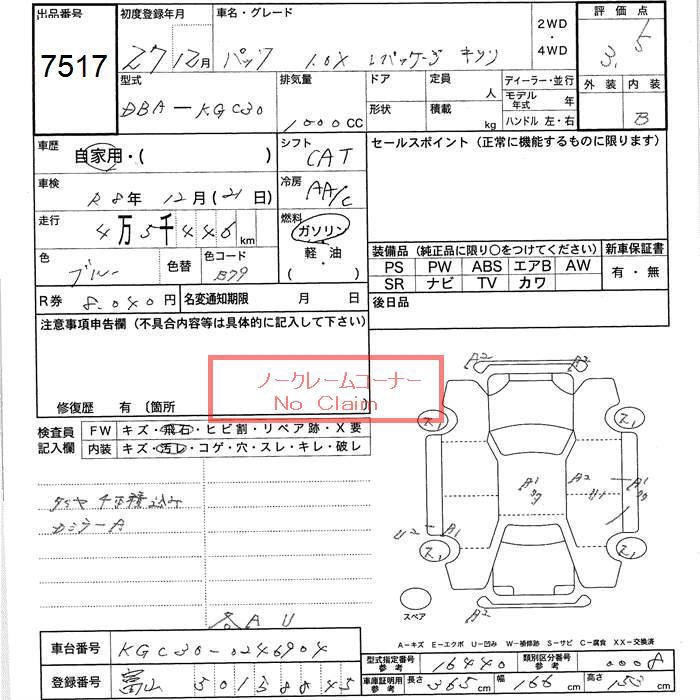 出品番号 初度登録年月 車名・グレード 2WD・4WD 評価点
7517 27 12月 パッソ 1.0X Lパッケージ キリリ 3.5
型式 排気量 ドア 定員 人 ディーラー・並行 外装 内装
DBA-KGC30 1000CC 形状 積載 kg モデル年式 年 B
ハンドル 左・右
車歴 自家用・( ) シフト CAT セールスポイント(正常に機能するものに限ります)
車検 R8年 12月(21日) 冷房 AA/C
走行 4万5千446km 燃料 ガソリン 軽・油 ・( )
色 ブルー 色替 色コード B79
装備品(純正品に限り〇をつけてください) 新車保証書
PS PW ABS エアB AW 有・無
SR ナビ TV カワ
R券 8,040円 名変通知期限 月 日 後日品
注意事項申告欄(不具合内容等は具体的に記入して下さい)
ノークレームコーナー
No Claim
修復歴 有〔箇所
検査員記入欄 FW キズ・飛石・ヒビ割・リペア跡・X要
内装 キズ・汚レ・コゲ・穴・スレ・キレ・破レ
A2 A2
A1 A2 A1
U2 A1
A2
スペア
A-キズ E-エクボ U-凹み W-補修跡 S-サビ C-腐食 XX-交換済
車台番号 KGC30-0246904 型式指定番号 参考 16440 類別区分番号 参考 0008
登録番号 富山 501 8845 車庫証明用 参考 長さ 365cm 幅 166cm 高さ 153cm